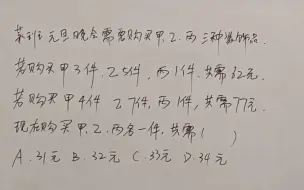 某班元旦晚会需要购买甲、乙、丙三种装饰品.
若购买甲3件,乙5件,丙1件,共需62元.
若购买甲4件乙7件,丙1件,共需77元.
现在购买甲、乙、丙各一件,共需( )
A.31元 B.32元 C.33元 D.34元